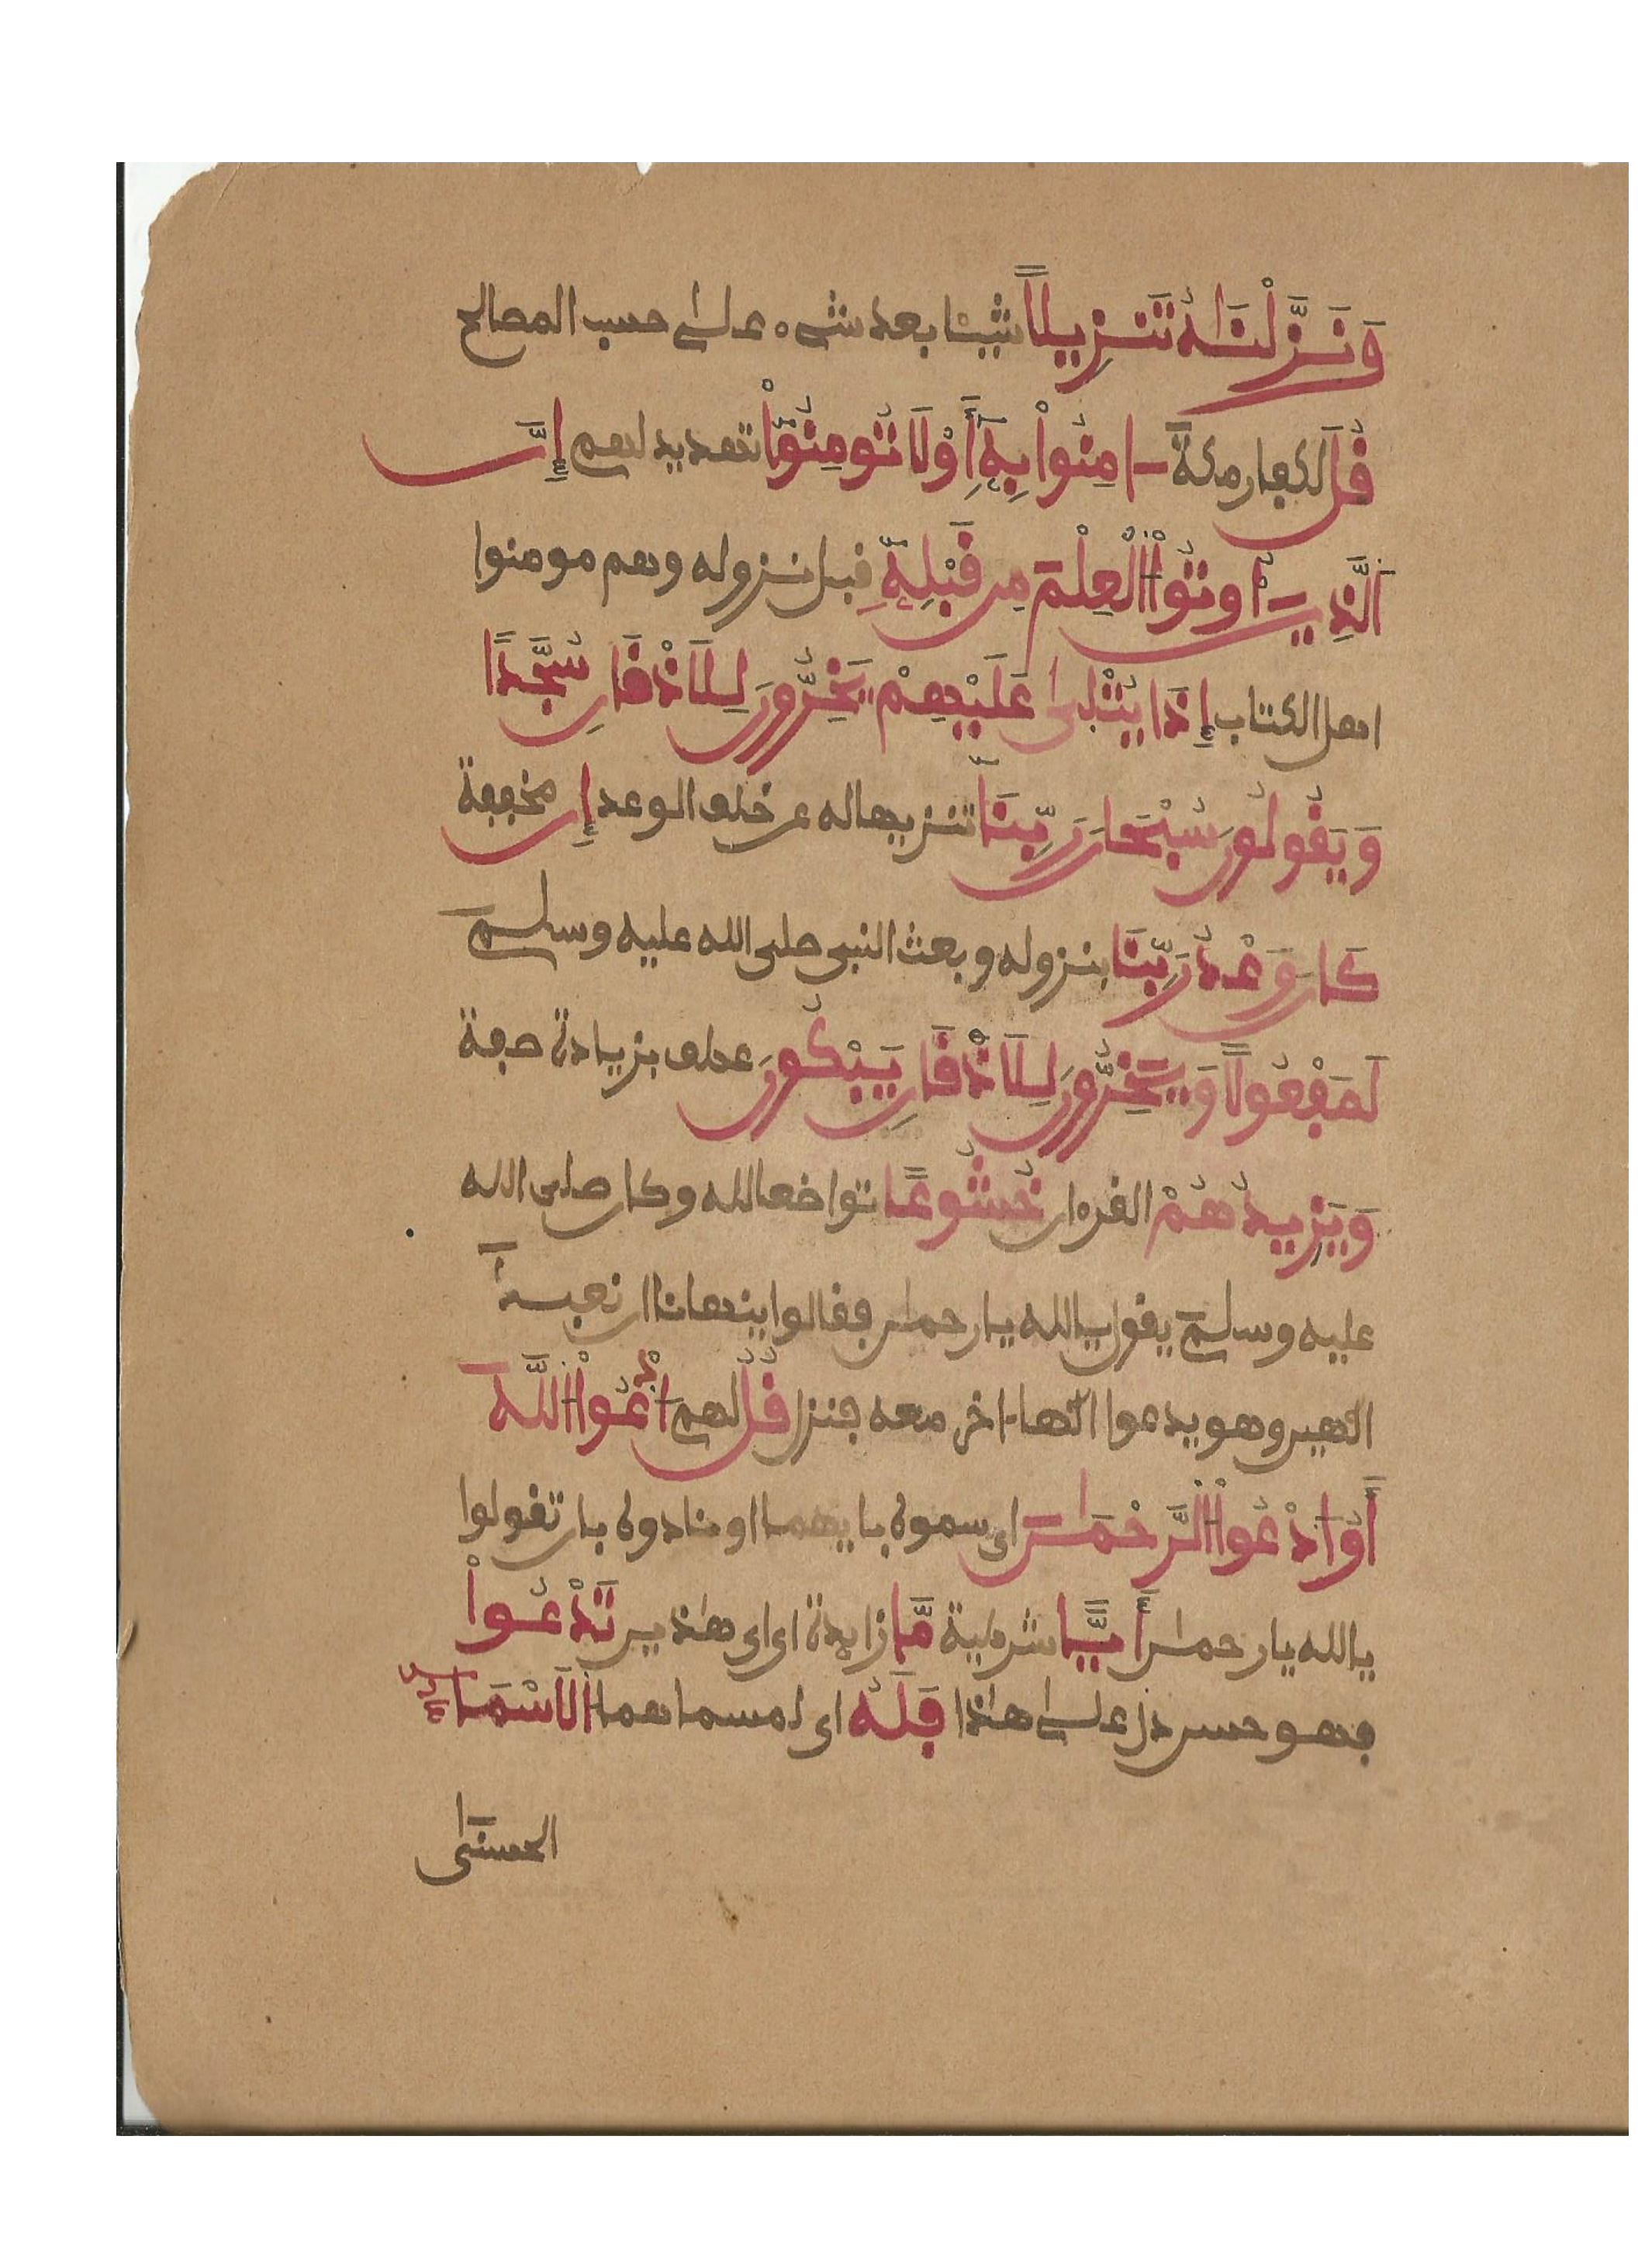 وَنَزَّلْنَٰهُ تَنزِيلاً شيئا بعد شىء علىٰ حسب المصالح
قُل لكفار مكة ءامِنُواْ بِهِۦٓ أَوْ لَا تُومِنُوٓاْ تهديد لهم إِنَّ
اَلذِينَ أُوتُواْ اُلْعِلْمَ مِن قَبْلِهِۦٓ قبل نزوله وهم مومنوا
اهل الكتاب إِذَا يُتْلَىٰ عَلَيْهِمْ يَخِرُّونَ لِلَاذْقَانِ سُجَّدًا
وَيَقُولُونَ سُبْحَانَ رَبِّنَآ تنزيها له عن خلف الوعد إِن مخففة
كَانَ وَعْدُ رَبِّنَا بنزوله وبعث النبى صلى الله عليه وسلم
لَمَفْعُولاً وَيَخِرُّونَ لِلَاذْقَانِ يَبْكُونَ عطف بزيادة صفة
وَيَزِيدُهُمْ القرءان خُشُوعًا تواضعا لله وكان صلى الله
عليه وسلم يقول يالله يا رحمٰن فقالوا ينهانا ان نعبد
الٰهين وهو يدعوا الٰها ءاخر معه فنزل قُلُ لهم اُدْعُواْ اُللَّهَ
أَوُ اُدْعُواْ اُلرَّحْمَٰنَ اى سموه بايهما او نادوه بان تقولوا
يالله يا رحمٰن أَيًّا شرطية مَّا زايدة اى اى هٰذين تَدْعُواْ
فهو حسن دل علىٰ هٰذا فَلَهُ اى لمسماهما اُلَاسْمَآءُ
الحسنىٰ